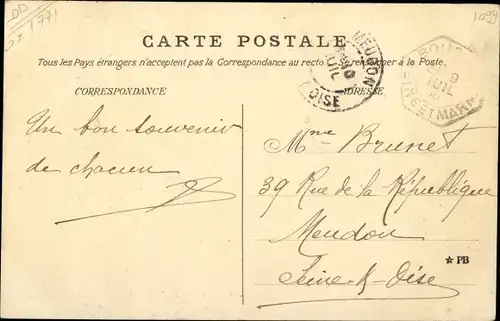 DD
1971
1099
CARTE POSTALE
Tous les Pays étrangers n'acceptent pas la Correspondance au recto. Se renseigner à la Poste.
CORRESPONDANCE
ADRESSE
JUIL
OISE
9
JUIL
Un bon souvenir
de chacun
Mme Brunet
39 Rue de la République
Meudon
☆ PB
Seine-&-Oise